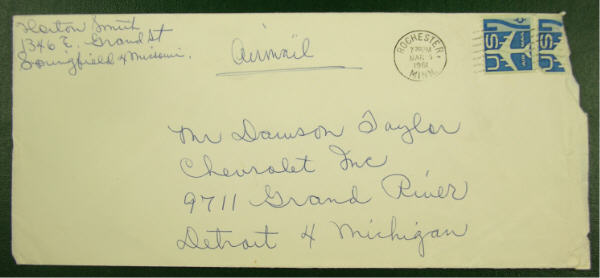 Horton Smith
1346 E. Grand St
Springfield 4 Missouri.
Airmail
ROCHESTER
7 PM
MAR 5
1961
MINN.
US
US
Mr Dawson Taylor
Chevrolet Inc
9711 Grand River
Detroit 4 Michigan